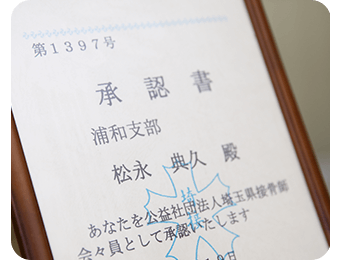 第1397号
承認書
浦和支部
松永 典久 殿
あなたを公益社団法人埼玉県接骨師
会々員として承認いたします
9日